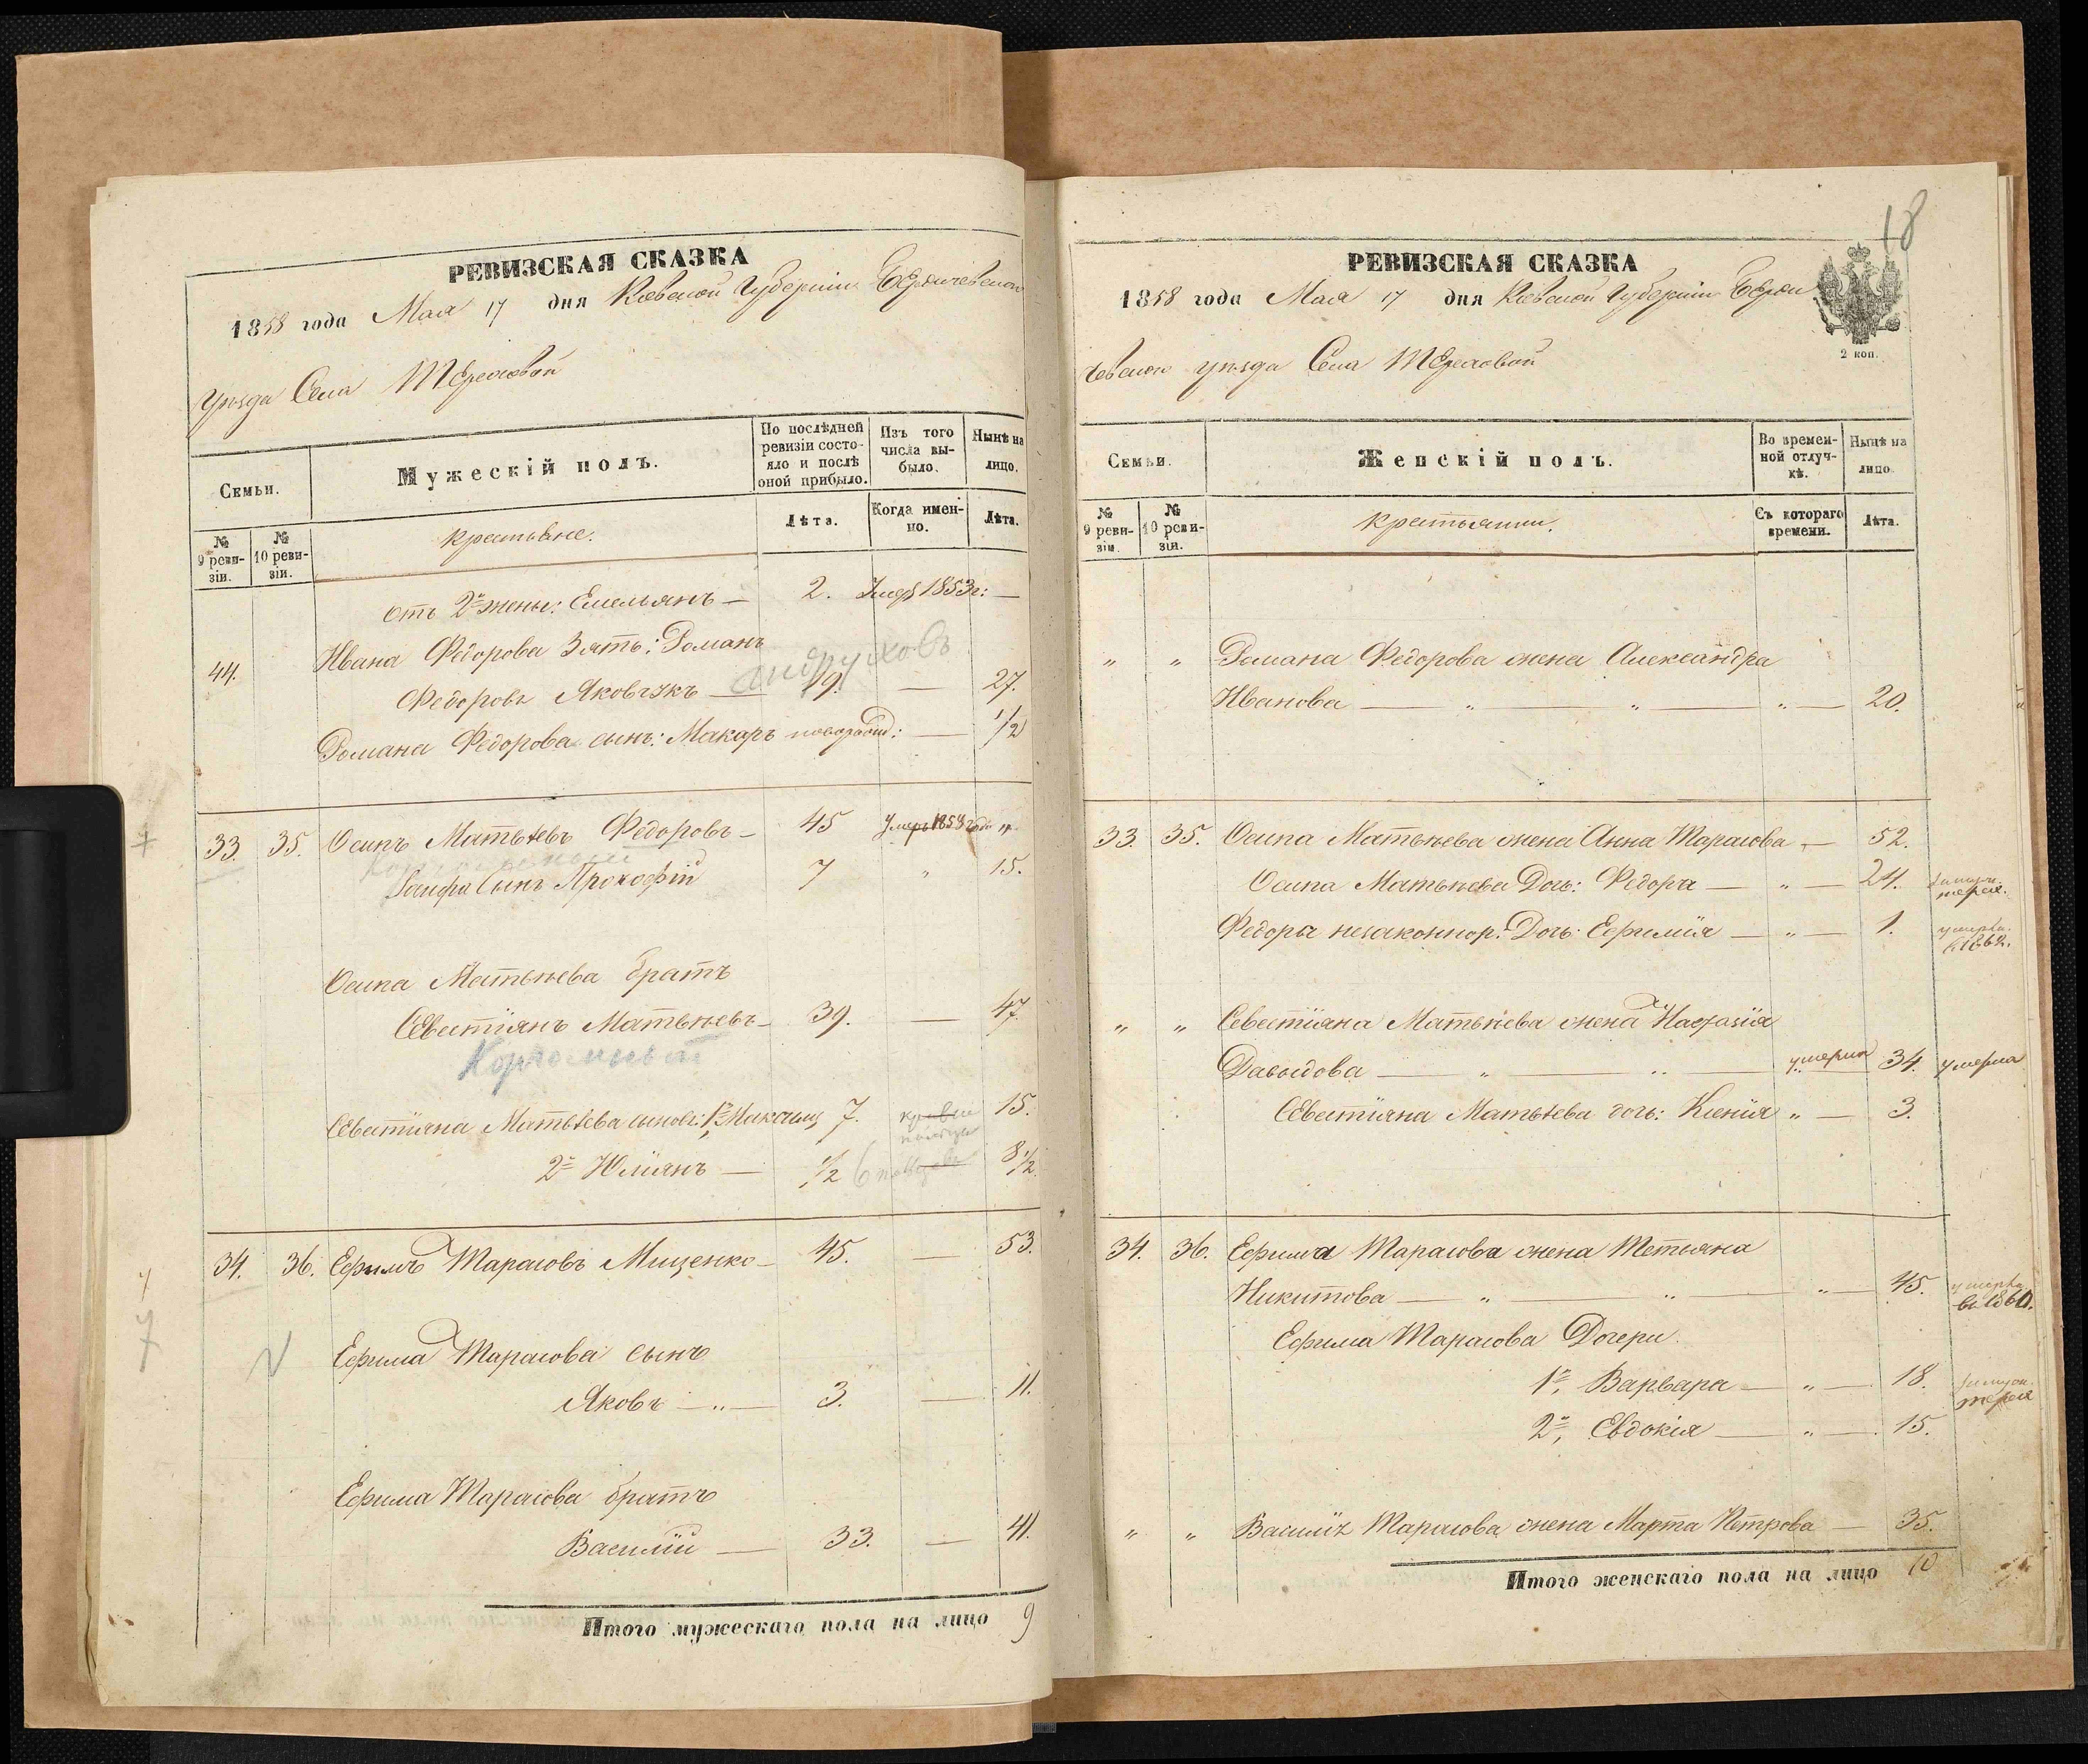 РЕВИЗСКАЯ СКАЗКА
1858 года Мая 17 дня Киевской Губерніи Бердичевскои
уѣзда Села
Семьи.
Мужескій полъ.
По послѣдней ревизіи состояло и послѣ оной прибыло.
Изъ того числа выбыло.
Нынѣ на лицо.
№ 9 ревизіи.
№ 10 ревизіи.
крестьяне.
Лѣта.
Когда именно.
Лѣта.
отъ 2й жены: Емельянъ — 2. Умеръ 1853г: —
44. Ивана Федорова Зять: Романъ
Федоровъ Яковчукъ — 19. — 27.
Романа Федорова сынъ: Макаръ новорожд: — 1/2
33. 35. Осипъ Матвѣевъ Федоровъ — 45 Умеръ 1858 года
Сынъ Прокофій 7 " 15.
Осипа Матвѣева братъ
Севастіянъ Матвѣевъ — 39. — 47.
Севастіяна Матвѣева сыновья: 1й Максимъ 7. 15.
2й Юліянъ — 1/2 8 1/2.
34. 36. Ефимъ Тарасовъ Мищенко — 45. — 53.
Ефима Тарасова сынъ
Яковъ — " — 3. — 11.
Ефима Тарасова братъ
Василій — 33. — 41.
Итого мужескаго пола на лицо 9
18
РЕВИЗСКАЯ СКАЗКА
1858 года Мая 17 дня Киевской Губерніи Берди
2 коп.
чевскои уѣзда Села
Семьи.
Женскій полъ.
Во временной отлучкѣ.
Нынѣ на лицо.
№ 9 ревизіи.
№ 10 ревизіи.
крестьянки.
Съ котораго времени.
Лѣта.
" " Романа Федорова жена Александра
Иванова — " — " — " — 20.
33. 35. Осипа Матвѣева жена Анна Тарасова — 52.
Осипа Матвѣева Дочь: Федора — " — 24.
Федоры незаконнор: Дочь: Ефимія — " — 1.
" " Севастіяна Матвѣева жена Настасія
Давыдова — " — " — умерла 34. умерла
Севастіяна Матвѣева дочь: Ксенія " — 3.
34. 36. Ефима Тарасова жена Тетьяна
Никитова — " — " — " — 45. умерла
въ 1860.
Ефима Тарасова Дочери.
1я, Варвара — " — 18.
2я, Евдокія — " — 15.
" " Василія Тарасова жена Марта Петрова — 35.
Итого женскаго пола на лицо 10